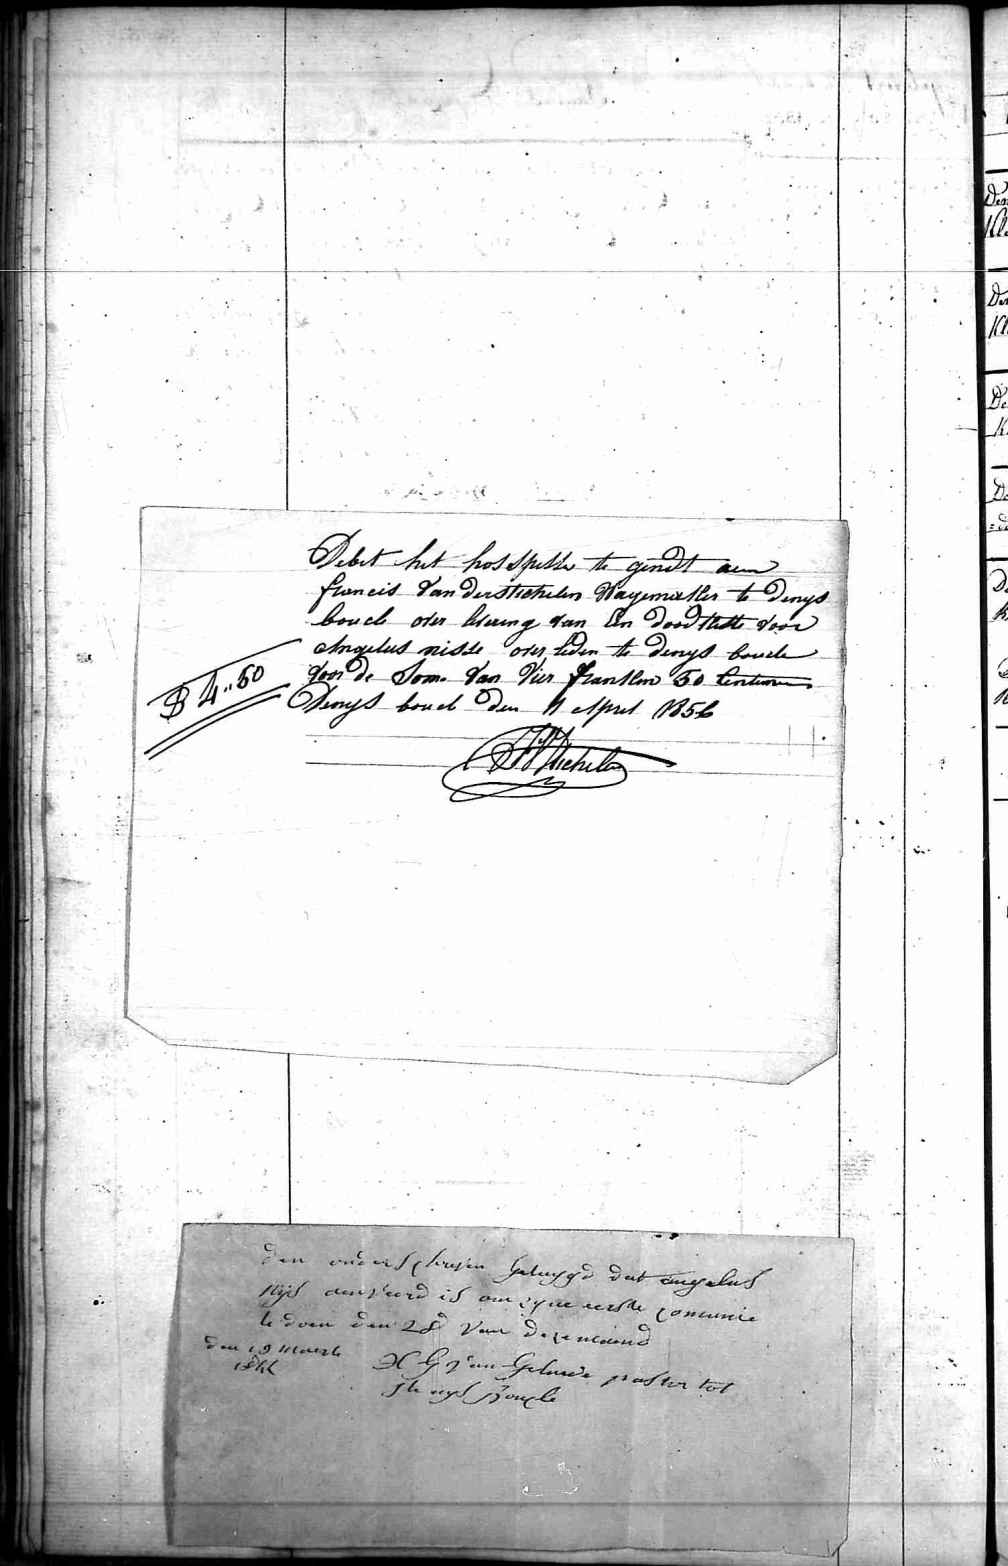 Debet het hosspetle te gendt aen
francis Van Derstichelen Wagemaker te Denys
boucle over levering van Een doodkiste voor
Angelus nisse over leden te denys boucle
voor de Som Van Vier franken 50 Centimes
$ 4"50
Denys boucl Den 1 April 1856
den onderschreven getuygd dat angelus
Nijs aenveerd is om zyne eerste comunie
te doen den 28 van deze maend
den 19 maerte
1844
van Geluwe pastor tot
st nys boucle
De
De
De
De